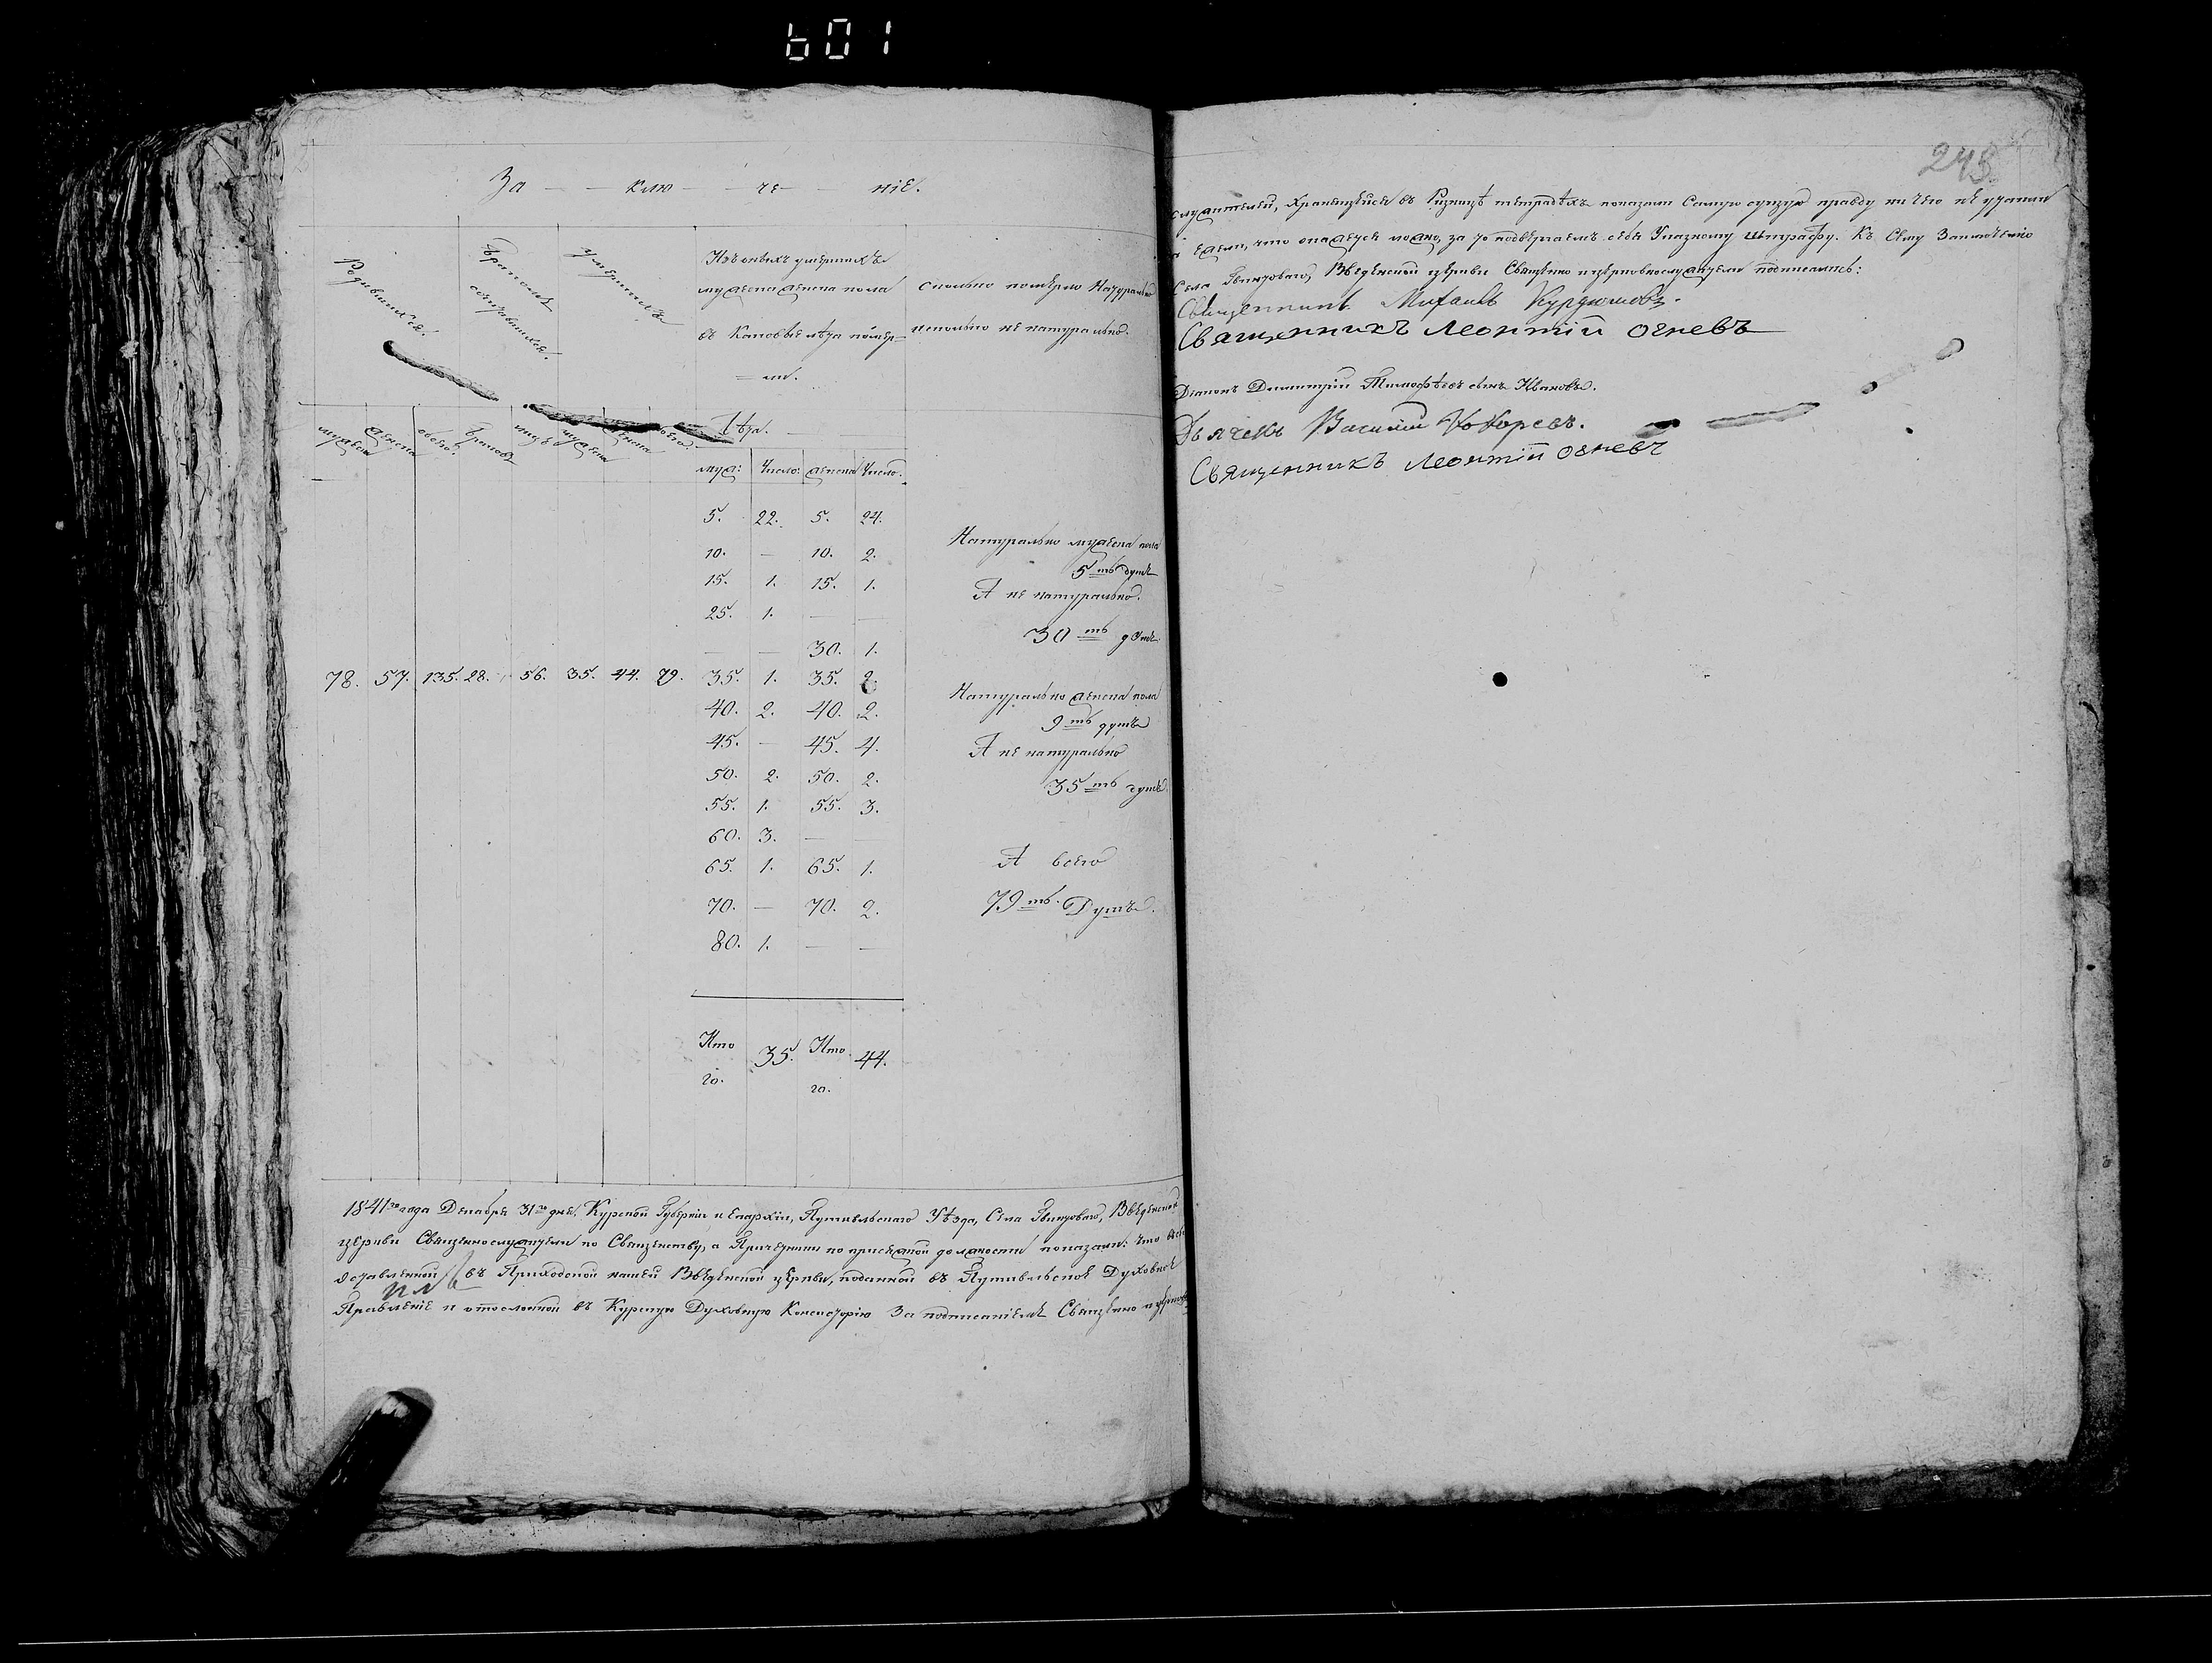 601
За — — клю — — че — — ніе.
Родившихся.
Бракомъ сочетавшихся.
Умершихъ
Изъ оныхъ умершихъ
мужеска женска пола
въ каковые лѣта помер-
=ли.
сколько померло натурально
и сколько не натурально.
мужеска женска обоего. браковъ лицъ мужеска женска обоего.
Лѣта.
муж: Число: женска Число.
5. 22. 5. 24.
10. — 10. 2.
15. 1. 15. 1.
25. 1. — —
— — 30. 1.
78. 57. 135. 28. 56. 35. 44. 79. 35. 1. 35. 2.
40. 2. 40. 2.
45. — 45. 4.
50. 2. 50. 2.
55. 1. 55. 3.
60. 3. — —
65. 1. 65. 1.
70. — 70. 2.
80. 1. — —
Ито 35. Ито 44.
го. го.
Натурально мужеска пола
5ть душъ
А не натурально.
30ть душъ.
Натурально женска пола
9ть душъ
А не натурально
35ть душъ.
А всего
79ть. Душъ.
1841го года Декабря 31го дня. Курской Губерніи и Епархіи, Путивльскаго Уѣзда, Села Введенской
церкви Священнослужители по Священству, а Причетники по присяжной должности показали: что
оставленной въ Приходской нашей Введенской церкви, поданной въ Путивльское Духовное
Правленіе и отосланной въ Курскую Духовную Консисторію За подписаніемъ Священно и
243
служителей, хранящейся въ Ризницѣ тетрадѣхъ показали Самую сущую правду ни чего не утаили
а ежели, что окажется ложно, за то подвергаемъ себя Указному штрафу. Къ Сему Заключенію
Села Введенской церкви Священно и церковнослужители подписались:
Священникъ Михаилъ Курдюмовъ.
Священникъ Леонтій Огневъ
Діаконъ Димитрій Тимофѣевъ сынъ Ивановъ.
Дьячекъ Василий Кокоревъ.
Священникъ Леонтій Огневъ